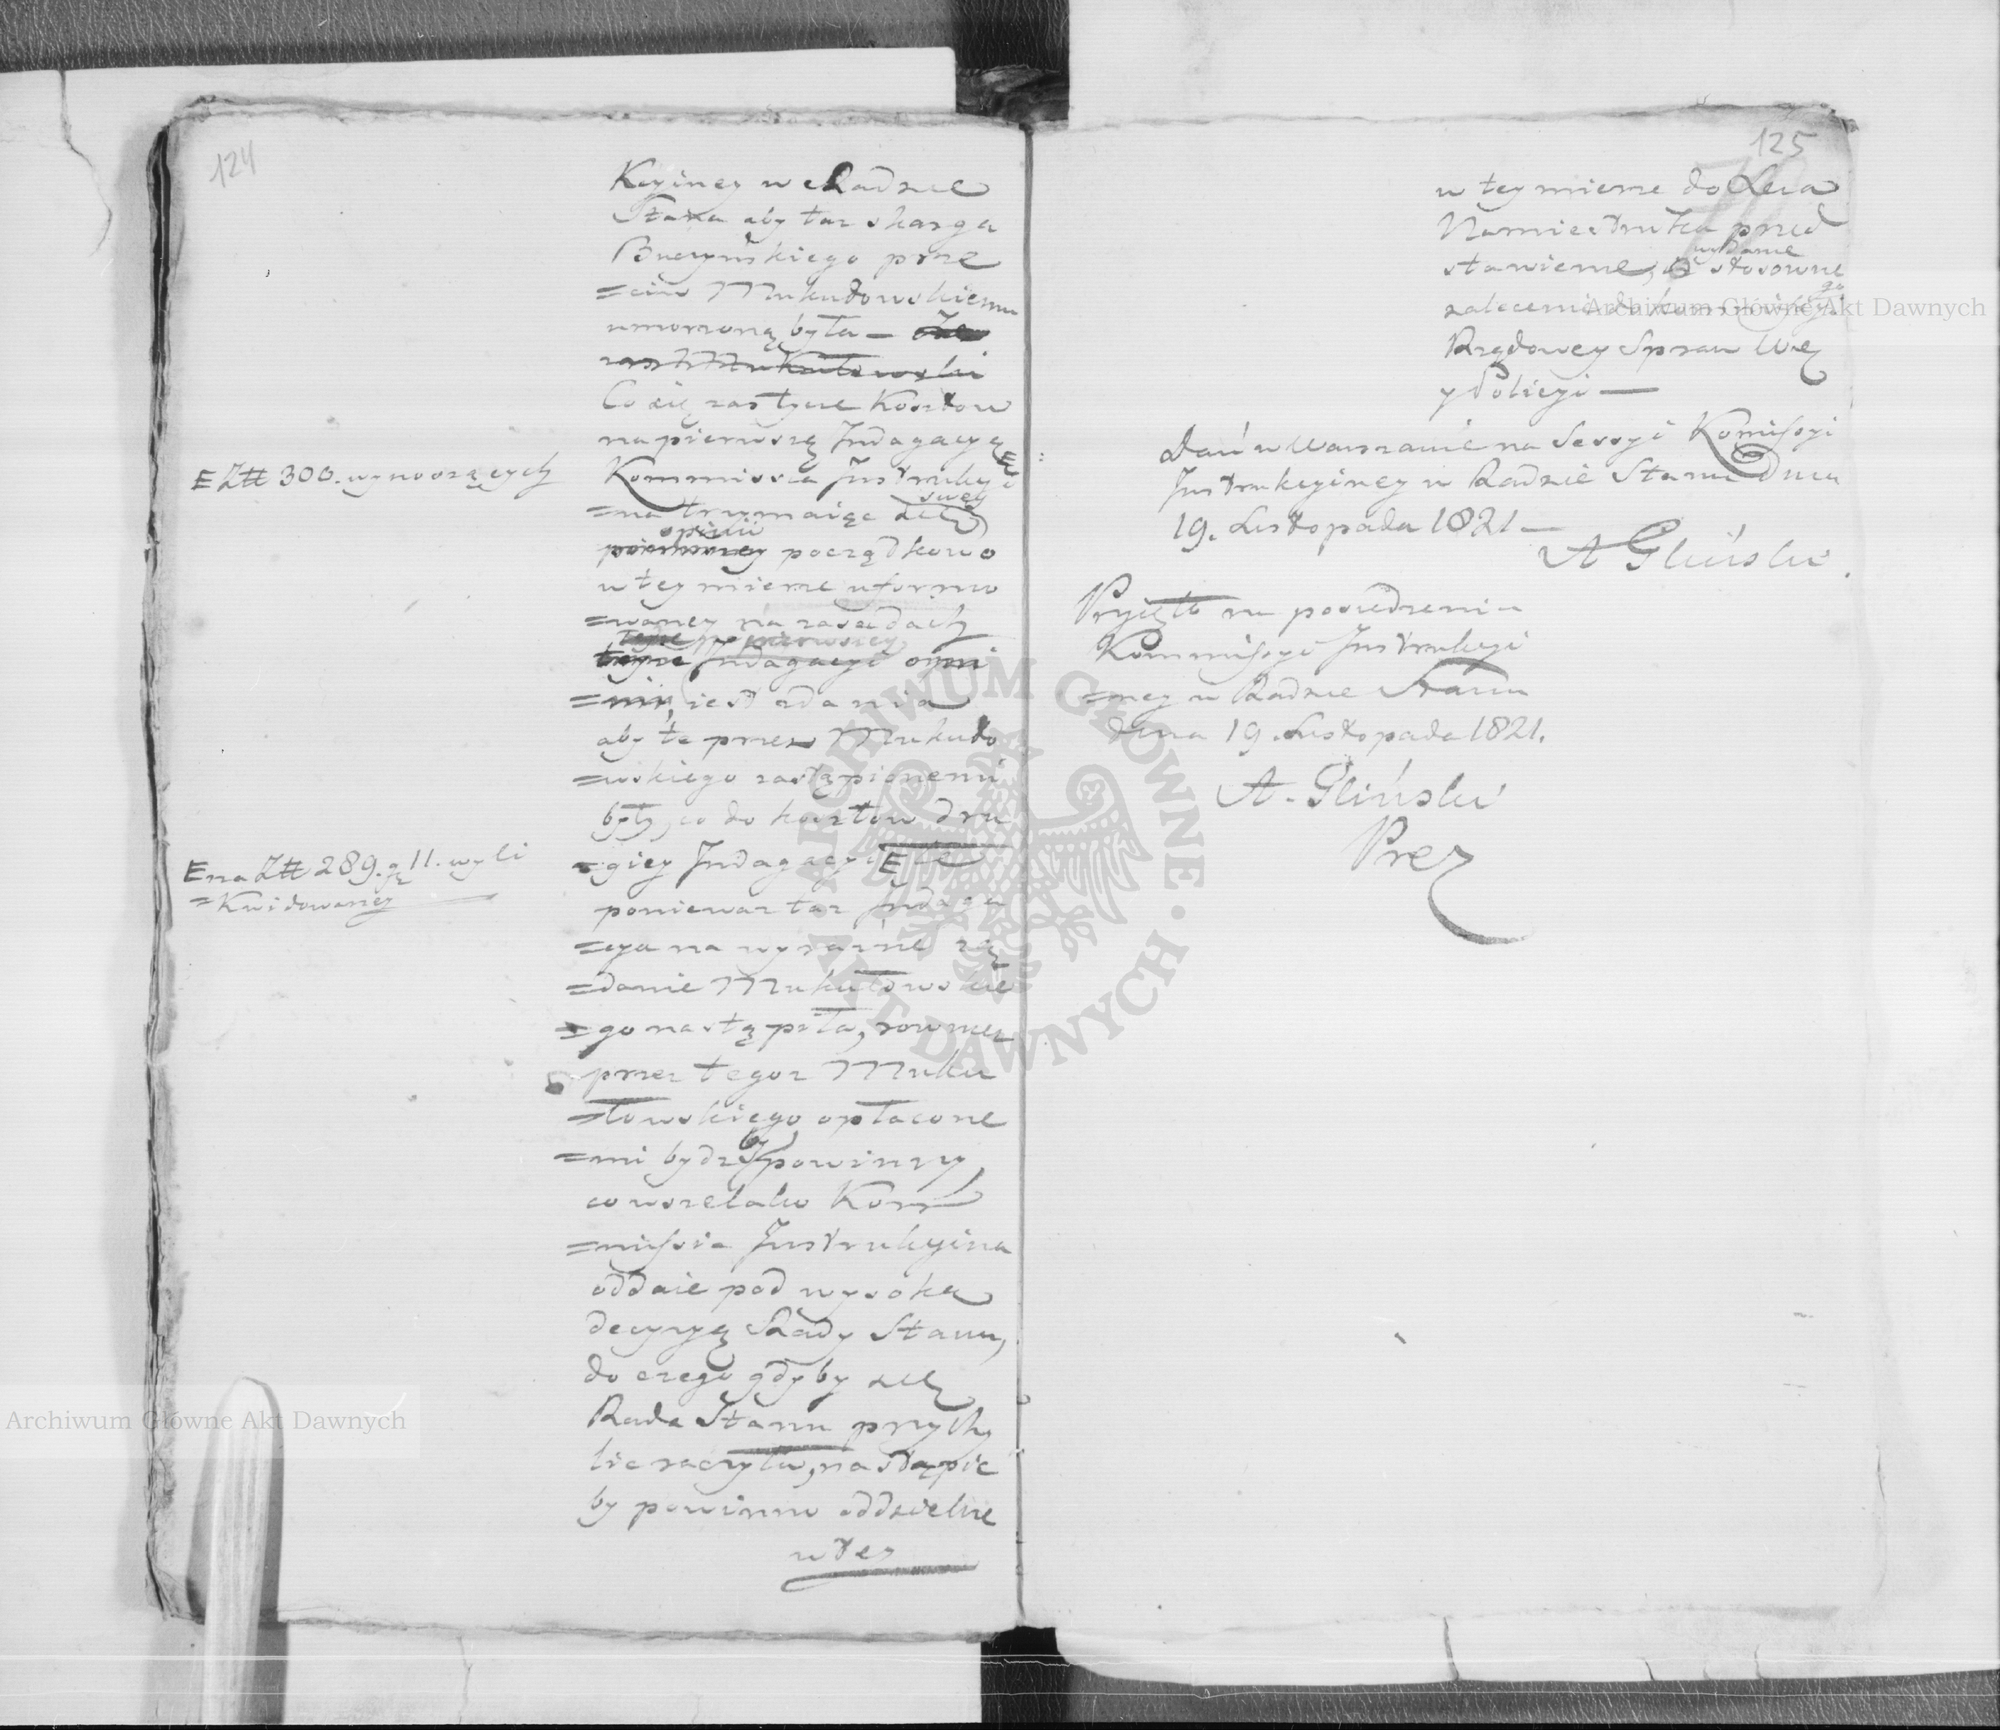 124
Kcyiney w Radzie
Stanu aby taż skarga
Buczyńskiego prze
=ciw Mukułowskiemu
umorzoną była —
Co się zaś tycze Kosztow
na pierwszą Indagacyą
E Zł 300. wynoszących
Kommissia Instrukcyi
=na trzymaiąc się swey
opinii początkowo
w tey mierze uformo
=waney na zasadach
pierwszey
Indagacyi
iest zdania
aby te przez Mukuło
=wskiego zastąpionemi
były, co do kosztow dru
=giey Indagacyi E te
E na Zł 289. gr 11. wyli
=kwidowaney
ponieważ taż Indaga
=cya na wyraźne żą
=danie Mukułowskie
=go nastąpiła, rownież
przez tegoż Muku
=łowskiego opłacone
=mi bydź by powinny,
co wszelako Kom
=missia Instrukcyina
oddaie pod wysoką
decyzyą Rady Stanu,
do czego gdyby się
Rada Stanu przychy
lić raczyła, nastąpić
by powinno oddzielne
w tey
125
w tey mierze do Xcia
Namiestnika przed
stawienie, o wydanie stosowne
go
zalecenia do Kommissyi
Rządowey Spraw Wew
y Policyi —
Dań w Warszawie na Sessyi Komissyi
Instrukcyiney w Radzie Stanu dnia
19. Listopada 1821 —
A Gliński
Przyięto na posiedzeniu
Kommissyi Instrukcyi
=ney w Radzie Stanu
dnia 19. Listopada 1821.
A. Gliński
Prez
Archiwum Główne Akt Dawnych
Archiwum Główne Akt Dawnych
ARCHIWUM GŁÓWNE · AKT DAWNYCH ·